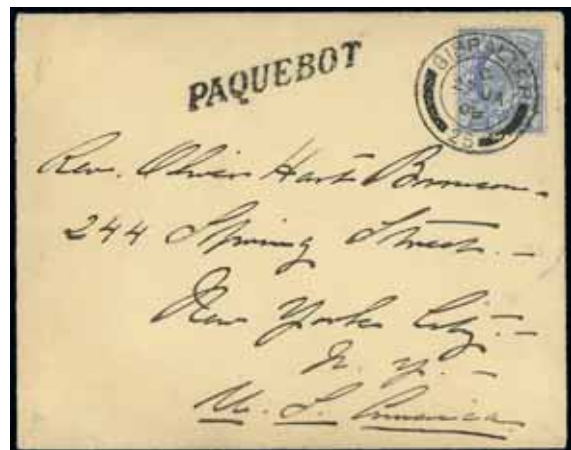 PAQUEBOT
GIBRALTAR
25
Rev. Oliver Hart Bronson.
244 Spring Street.
New York City.
N. Y.
U. S. America.